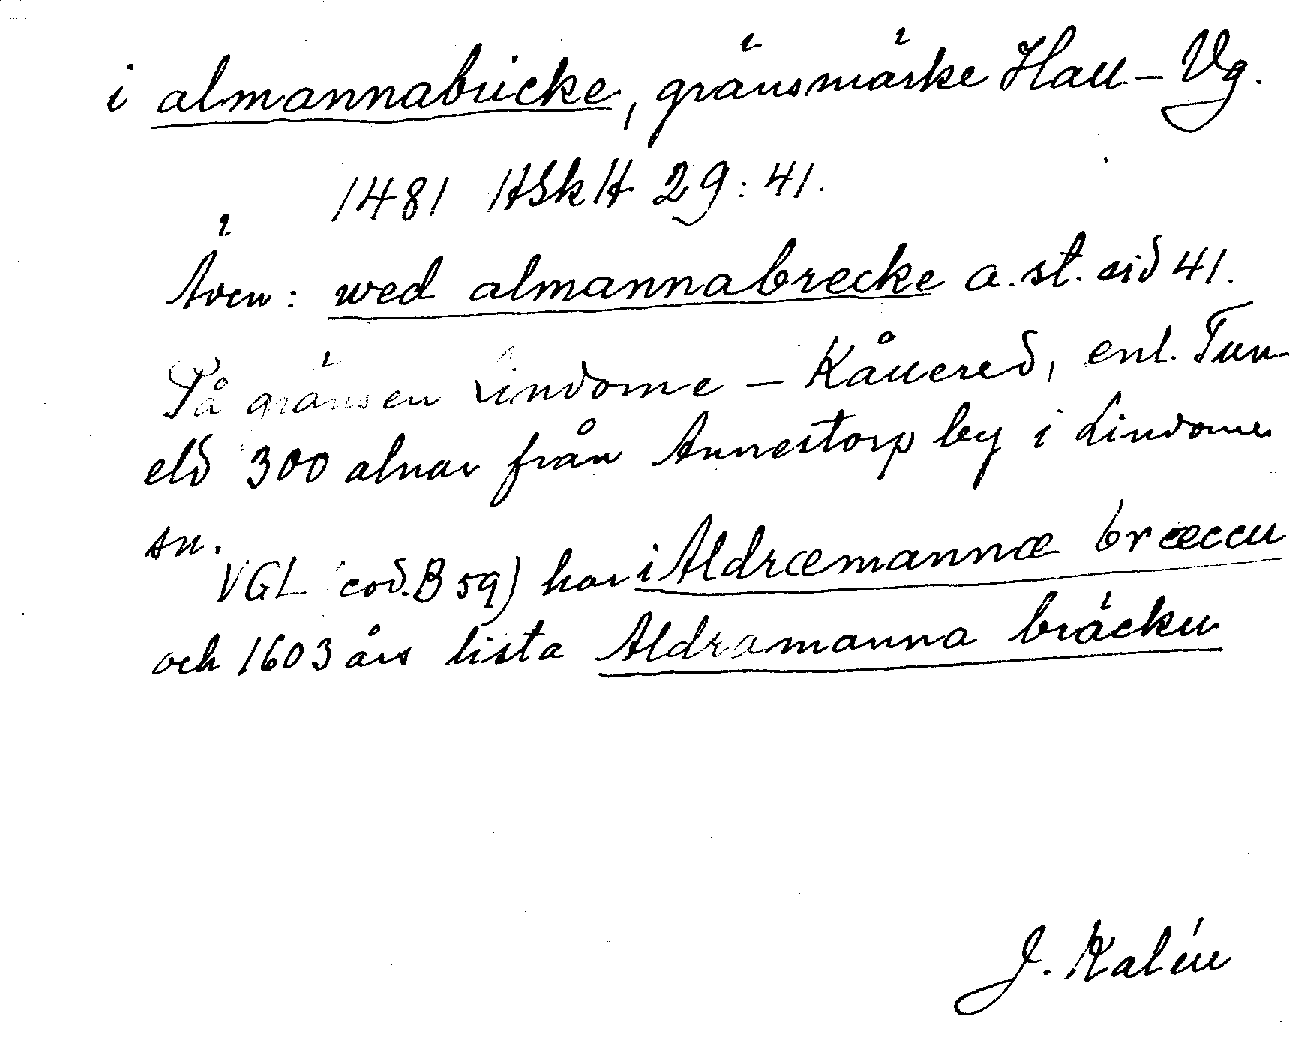 i almannabricke, gränsmärke Hall – Vg.
1481 HSkH 29:41.
Även: wed almannabrecke a. st. sid 41.
På gränsen Lindome – Kållered, enl. Tun-
eld 300 alnar från Annestorp by i Lindome
sn.
VGL (cod. B 59) har i Aldræmannæ bræccu
och 1603 års lista Aldramanna bräcku
J. Kalén